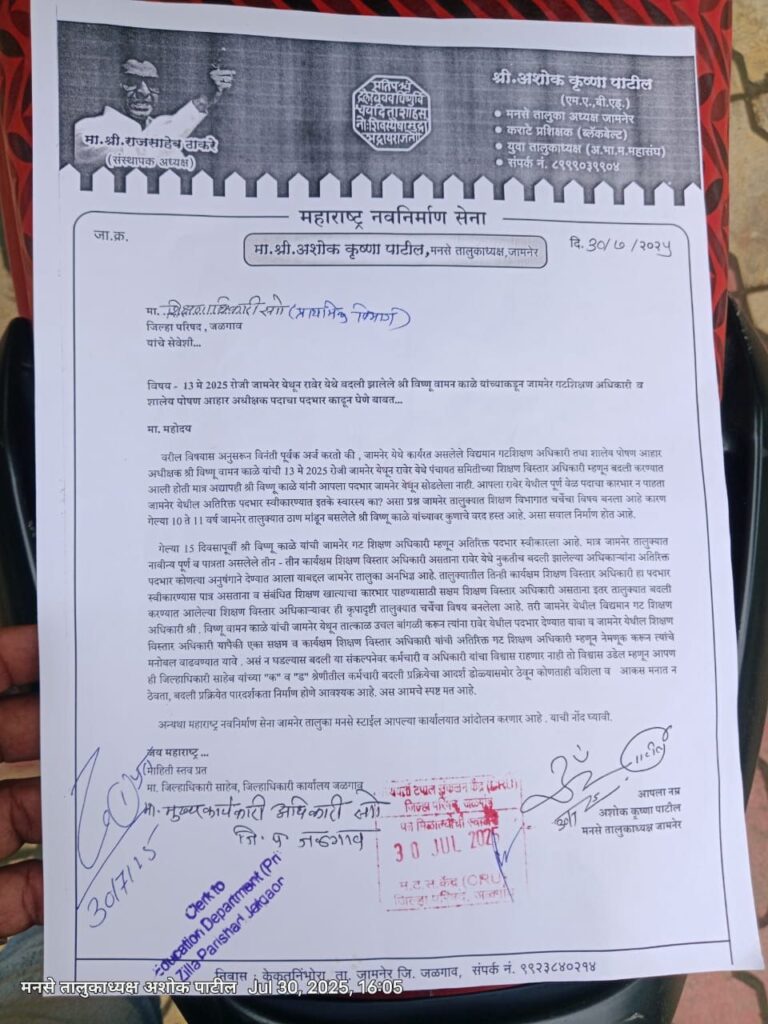 श्री.अशोक कृष्णा पाटील
(एम.ए.,बी.एड्.)
• मनसे तालुका अध्यक्ष जामनेर
• कराटे प्रशिक्षक (ब्लॅकबेल्ट)
• युवा तालुकाध्यक्ष (अ.भा.म.महासंघ)
• संपर्क नं. ८९९९०३९९०४
मा.श्री.राजसाहेब ठाकरे
(संस्थापक अध्यक्ष)
महाराष्ट्र नवनिर्माण सेना
जा.क्र.
मा.श्री.अशोक कृष्णा पाटील,मनसे तालुकाध्यक्ष,जामनेर
दि. 30/७/२०२५
मा. शिक्षणाधिकारी सो (प्राथमिक विभाग)
जिल्हा परिषद , जळगाव
यांचे सेवेशी...
विषय - 13 मे 2025 रोजी जामनेर येथून रावेर येथे बदली झालेले श्री विष्णू वामन काळे यांच्याकडून जामनेर गटशिक्षण अधिकारी व
शालेय पोषण आहार अधीक्षक पदाचा पदभार काढून घेणे बाबत...
मा. महोदय
वरील विषयास अनुसरून विनंती पूर्वक अर्ज करतो की , जामनेर येथे कार्यरत असलेले विद्यमान गटशिक्षण अधिकारी तथा शालेय पोषण आहार
अधीक्षक श्री विष्णू वामन काळे यांची 13 मे 2025 रोजी जामनेर येथून रावेर येथे पंचायत समितीच्या शिक्षण विस्तार अधिकारी म्हणून बदली करण्यात
आली होती मात्र अद्यापही श्री विष्णू काळे यांनी आपला पदभार जामनेर येथून सोडलेला नाही. आपला रावेर येथील पूर्ण वेळ पदाचा कारभार न पाहता
जामनेर येथील अतिरिक्त पदभार स्वीकारण्यात इतके स्वारस्य का? असा प्रश्न जामनेर तालुक्यात शिक्षण विभागात चर्चेचा विषय बनला आहे कारण
गेल्या 10 ते 11 वर्ष जामनेर तालुक्यात ठाण मांडून बसलेले श्री विष्णू काळे यांच्यावर कुणाचे वरद हस्त आहे. असा सवाल निर्माण होत आहे.
गेल्या 15 दिवसापूर्वी श्री विष्णू काळे यांची जामनेर गट शिक्षण अधिकारी म्हणून अतिरिक्त पदभार स्वीकारला आहे. मात्र जामनेर तालुक्यात
नावीन्य पूर्ण व पात्रता असलेले तीन - तीन कार्यक्षम शिक्षण विस्तार अधिकारी असताना रावेर येथे नुकतीच बदली झालेल्या अधिकाऱ्यांना अतिरिक्त
पदभार कोणत्या अनुषंगाने देण्यात आला याबद्दल जामनेर तालुका अनभिज्ञ आहे. तालुक्यातील तिन्ही कार्यक्षम शिक्षण विस्तार अधिकारी हा पदभार
स्वीकारण्यास पात्र असताना व संबंधित शिक्षण खात्याचा कारभार पाहण्यासाठी सक्षम शिक्षण विस्तार अधिकारी असताना इतर तालुक्यात बदली
करण्यात आलेल्या शिक्षण विस्तार अधिकाऱ्यावर ही कृपादृष्टी तालुक्यात चर्चेचा विषय बनलेला आहे. तरी जामनेर येथील विद्यमान गट शिक्षण
अधिकारी श्री . विष्णू वामन काळे यांची जामनेर येथून तात्काळ उचल बांगळी करून त्यांना रावेर येथील पदभार देण्यात यावा व जामनेर येथील शिक्षण
विस्तार अधिकारी यापैकी एका सक्षम व कार्यक्षम शिक्षण विस्तार अधिकारी यांची अतिरिक्त गट शिक्षण अधिकारी म्हणून नेमणूक करून त्यांचे
मनोबल वाढवण्यात यावे . असं न घडल्यास बदली या संकल्पनेवर कर्मचारी व अधिकारी यांचा विश्वास राहणार नाही तो विश्वास उडेल म्हणून आपण
ही जिल्हाधिकारी साहेब यांच्या "क" व "ड" श्रेणीतील कर्मचारी बदली प्रक्रियेचा आदर्श डोळ्यासमोर ठेवून कोणताही वशिला व आकस मनात न
ठेवता, बदली प्रक्रियेत पारदर्शकता निर्माण होणे आवश्यक आहे. अस आमचे स्पष्ट मत आहे.
अन्यथा महाराष्ट्र नवनिर्माण सेना जामनेर तालुका मनसे स्टाईल आपल्या कार्यालयात आंदोलन करणार आहे . याची नोंद घ्यावी.
जय महाराष्ट्र ...
माहिती स्तव प्रत
मा. जिल्हाधिकारी साहेब, जिल्हाधिकारी कार्यालय जळगाव
मा. मुख्यकार्यकारी अधिकारी सो
जि प जळगाव
30/7/25
Clerk to
Education Department (Pri
Zilla Parishad Jalgaon
जिल्हा परिषद, जळगाव
30 JUL 2025
म.ट.स.केंद्र (CRU)
जिल्हा परिषद, जळगाव
पाटील
आपला नम्र
अशोक कृष्णा पाटील
मनसे तालुकाध्यक्ष जामनेर
निवास : केकतनिंभोरा, ता. जामनेर जि. जळगाव, संपर्क नं. ९९२३८४०२१४
मनसे तालुकाध्यक्ष अशोक पाटील Jul 30, 2025, 16:05